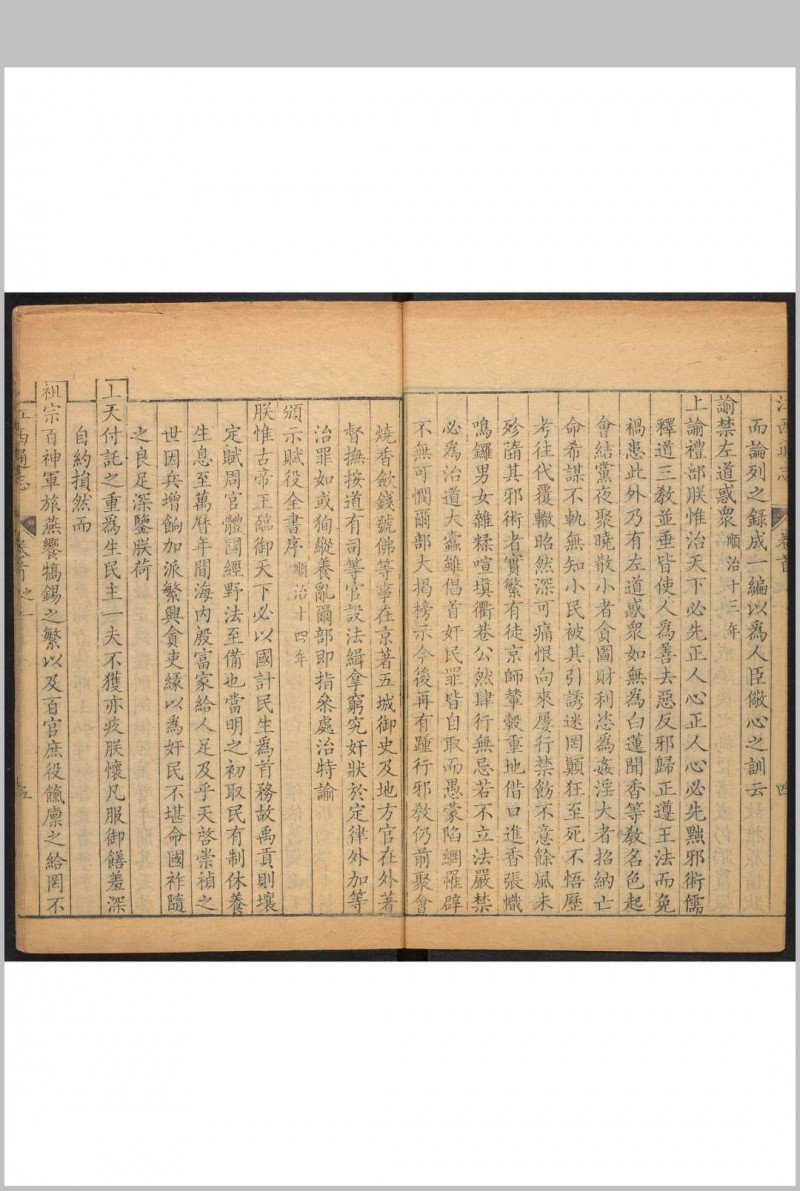 江西通志 卷首 四
而論列之録成一編以爲人臣儆心之訓云
諭禁左道惑衆順治十三年
上諭禮部朕惟治天下必先正人心正人心必先黜邪術儒
釋道三教並垂皆使人爲善去惡反邪歸正遵王法而免
禍患此外乃有左道惑衆如無爲白蓮聞香等教名色起
會結黨夜聚曉散小者貪圖財利恣爲姦淫大者招納亡
命希謀不軌無知小民被其引誘迷罔顛狂至死不悟歷
考往代覆轍昭然深可痛恨向來屢行禁飭不意餘風未
殄隨其邪術者實繁有徒京師輦轂重地借口進香張幟
鳴鑼男女雜糅喧塡衢巷公然肆行無忌若不立法嚴禁
必爲治道大蠧雖倡首奸民罪皆自取而愚蒙陷網罹辟
不無可憫爾部大揭榜示今後再有踵行邪教仍前聚會
燒香斂錢號佛等事在京著五城御史及地方官在外著
督撫按道有司等官設法緝拿窮究奸狀於定律外加等
治罪如或狥縱養亂爾部即指叅處治特諭
頒示賦役全書序順治十四年
朕惟古帝王臨御天下必以國計民生爲首務故禹貢則壤
定賦周官體國經野法至備也當明之初取民有制休養
生息至萬曆年間海内殷富家給人足及乎天啓崇禎之
世因兵增餉加派繁興貪吏緣以爲奸民不堪命國祚隨
之良足深鑒朕荷
上天付託之重爲生民主一夫不獲亦疚朕懷凡服御饍羞深
自約損然而
祖宗百神軍旅燕饗犒錫之繁以及百官庶役餼廪之給罔不
江西通志 卷首之一 五